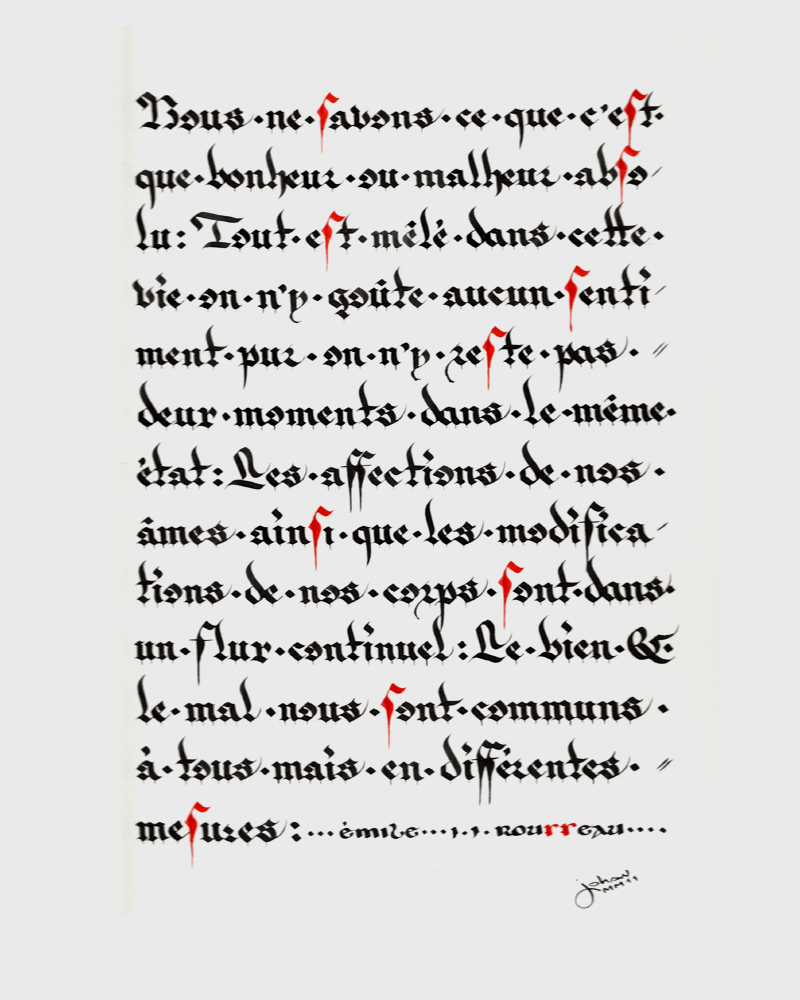 Nous·ne·savons·ce·que·c'est·
que·bonheur·ou·malheur·abso-
lu: Tout·est·mêlé·dans·cette·
vie·on·n'y·goûte·aucun·senti-
ment·pur·on·n'y·reste·pas·
deux·moments·dans·le·même·
état: Les·affections·de·nos·
âmes·ainsi·que·les·modifica-
tions·de·nos·corps·sont·dans·
un·flux·continuel: Le·bien·&·
le·mal·nous·sont·communs·
à·tous·mais·en·différentes·
mesures: ...émile...J.J. Rousseau....
johan
MM11